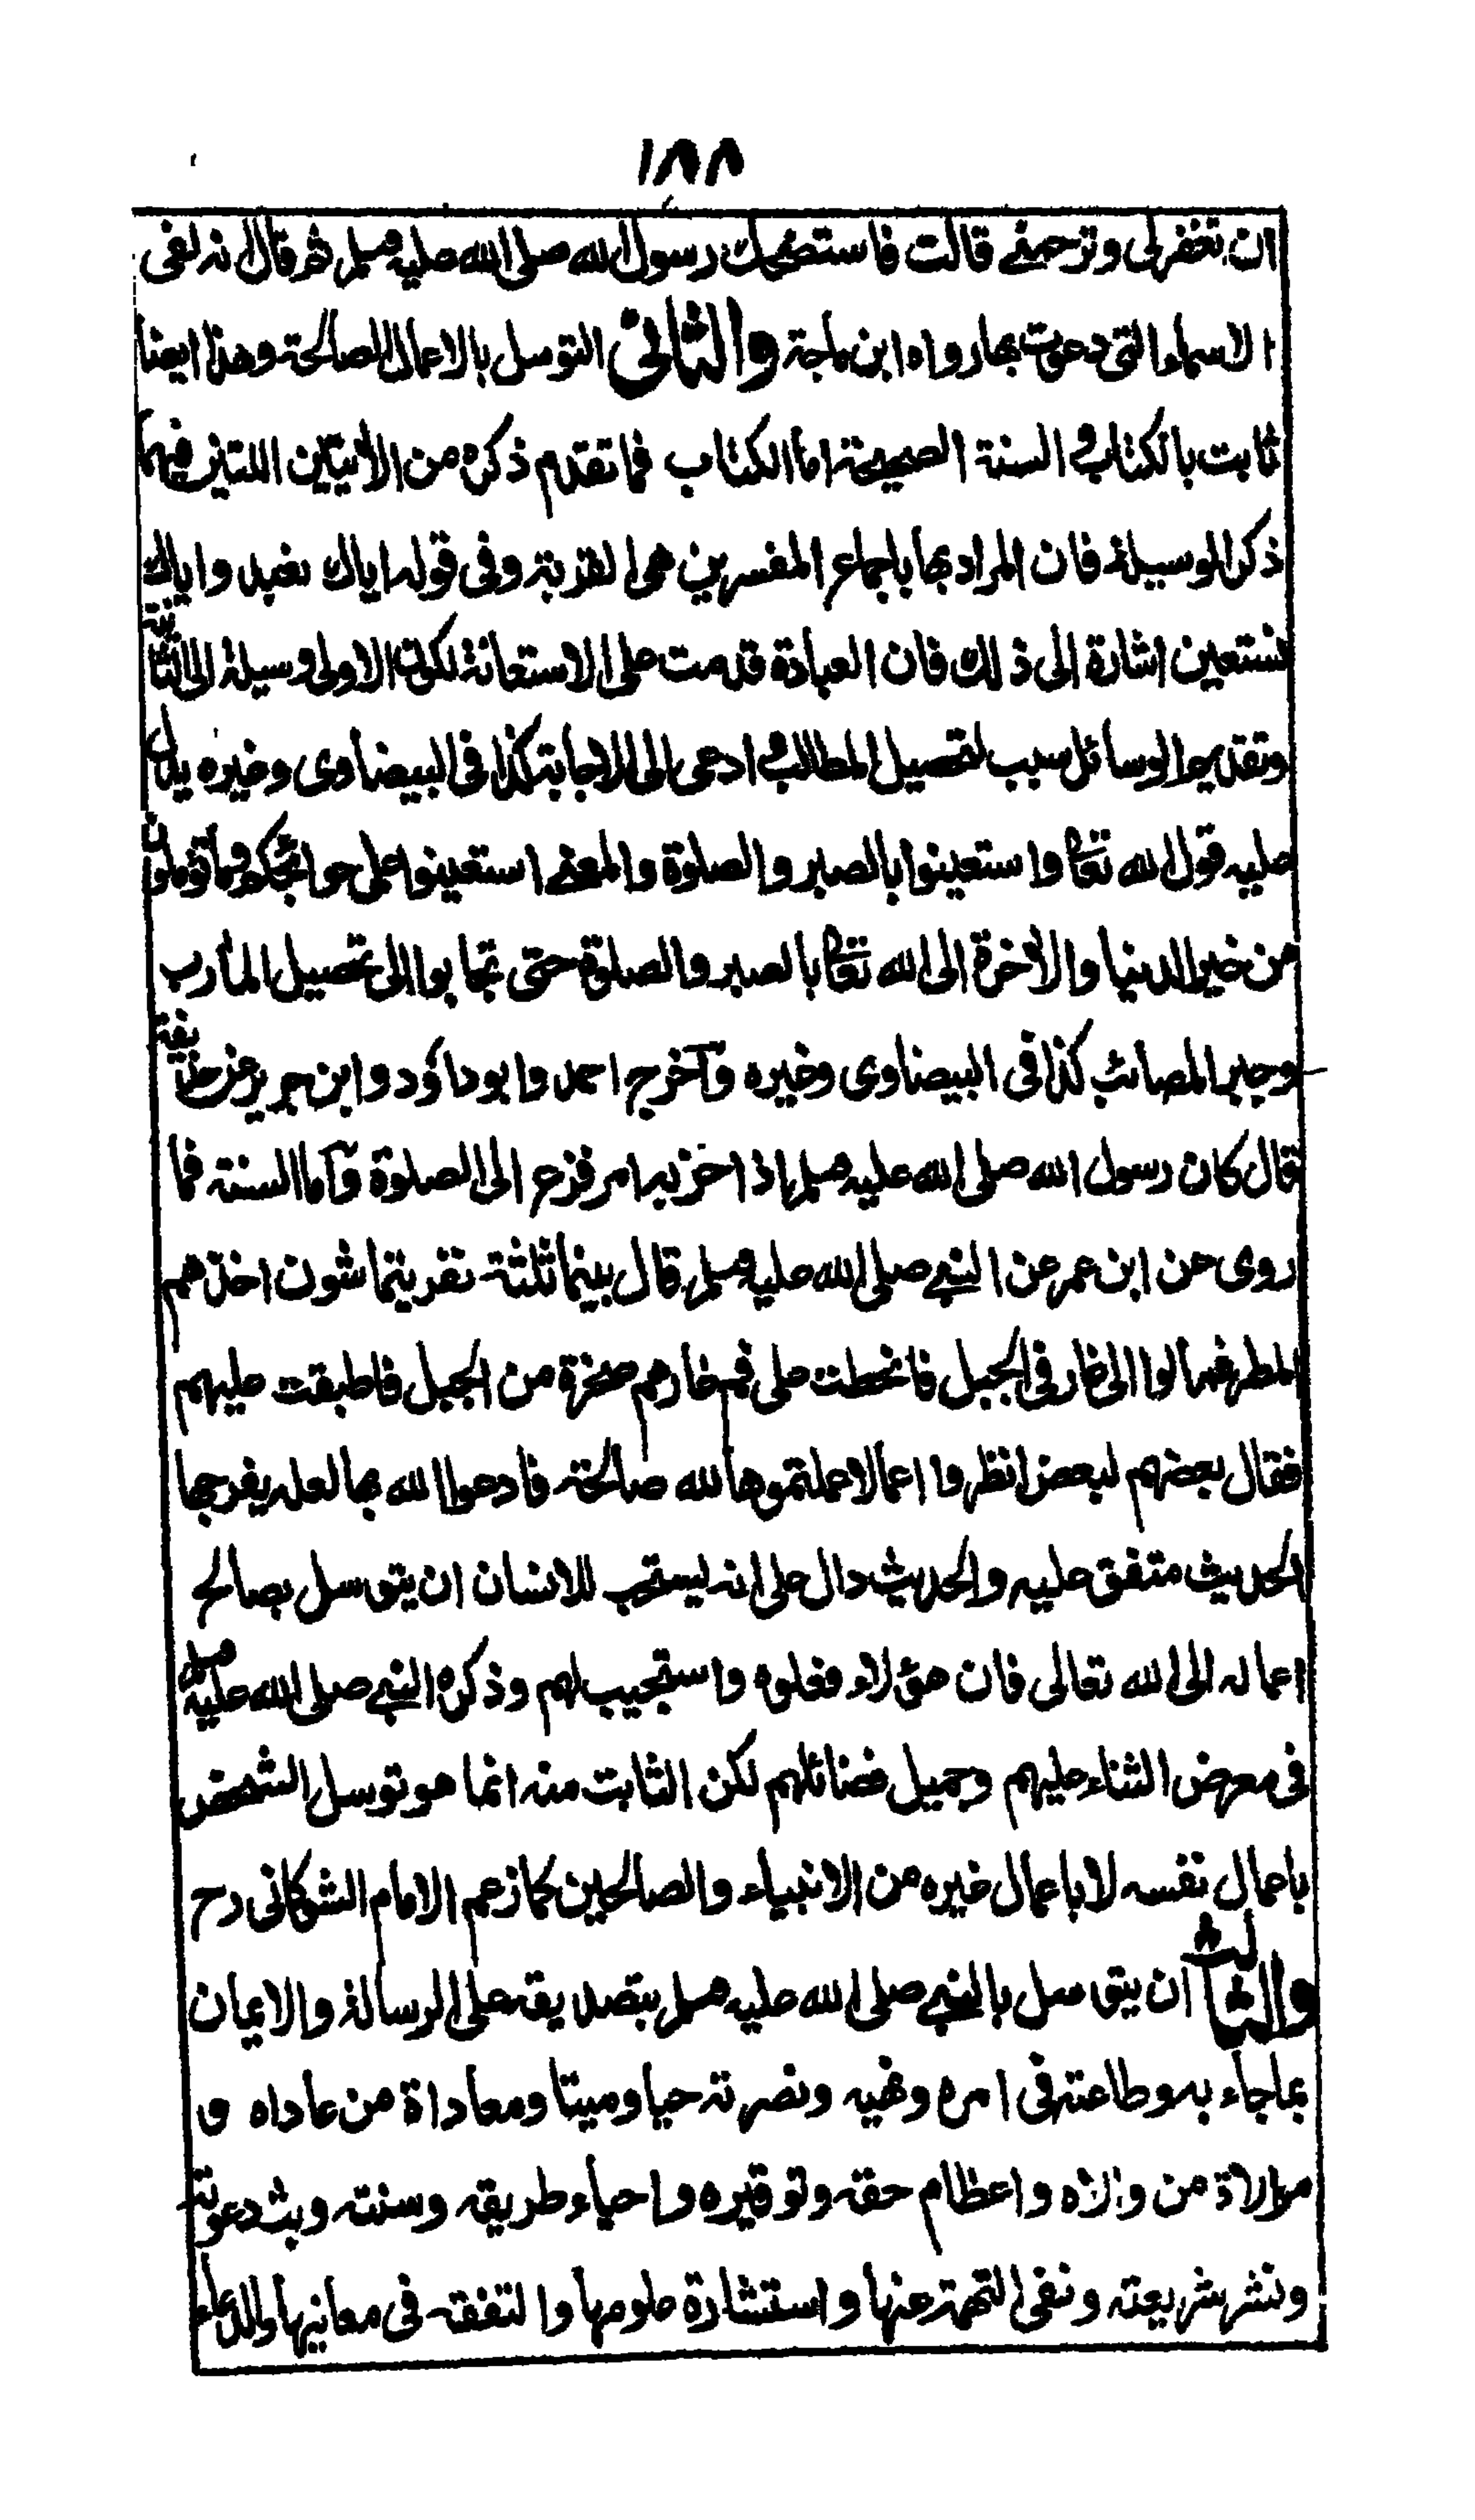 ١٨٨
ان تغفر لى وترحمنى قالت فاستضحك رسول الله صلى الله عليه وسلم ثم قال انه لفى
الاسماء التى دعوت بها رواه ابن ماجة والثانى التوسل بالاعمال الصالحة وهذا ايضا
ثابت بالكتاب والسنة الصحيحة اما الكتاب فما تقدم ذكره من الاٰيتين اللتين فيهما
ذكر الوسيلة فان المراد بها باجماع المفسرين هو القربة وفى قوله اياك نعبد واياك
نستعين اشارة الى ذلك فان العبادة قدمت على الاستعانة لكون الاولى وسيلة الى الثانية
وتقديم الوسائل سبب لتحصيل المطلب وادعى الى الاجابة كذا فى البيضاوى وغيره يدل
عليه قول الله تعالى واستعينوا بالصبر والصلوة والمعنى استعينوا على حوائجكم وما تؤملون
من خير الدنيا والاٰخرة الى الله تعالى بالصبر والصلوة حتى تجابوا الى تحصيل المآرب
وجبر المصائب كذا فى البيضاوى وغيره وآخرج احمد وابوداؤد وابن جرير عن حذيفة
قال كان رسول الله صلى الله عليه وسلم اذا حزبه امر فزع الى الصلوة وآما السنة فما
روى عن ابن عمر عن النبى صلى الله عليه وسلم قال بينما ثلثة نفر يتماشون اخذهم
المطر فمالوا الى غار فى الجبل فانحطت على فم غارهم صخرة من الجبل فاطبقت عليهم
فقال بعضهم لبعض انظروا اعمالا عملتموها لله صالحة فادعوا الله بها لعله يفرجها
الحديث متفق عليه والحديث دال على انه يستحب للانسان ان يتوسل بصالح
اعماله الى الله تعالى فان هؤلاء فعلوه واستجيب لهم وذكره النبى صلى الله عليه وسلم
فى معرض الثناء عليهم وجميل فضائلهم لكن الثابت منه انما هو توسل الشخص
باعمال نفسه لا باعمال غيره من الانبياء والصالحين كما زعم الامام الشوكانى رح
والثالث ان يتوسل بالنبى صلى الله عليه وسلم بتصديقه على الرسالة والايمان
بما جاء به وطاعته فى امره ونهيه ونصرته حيا وميتا ومعاداة من عاداه و
موالاة من والاه واعظام حقه وتوقيره واحياء طريقه وسنته وبث دعوته
ونشر شريعته ونفى التهمة عنها واستشارة علومها والتفقه فى معانيها والدعاء